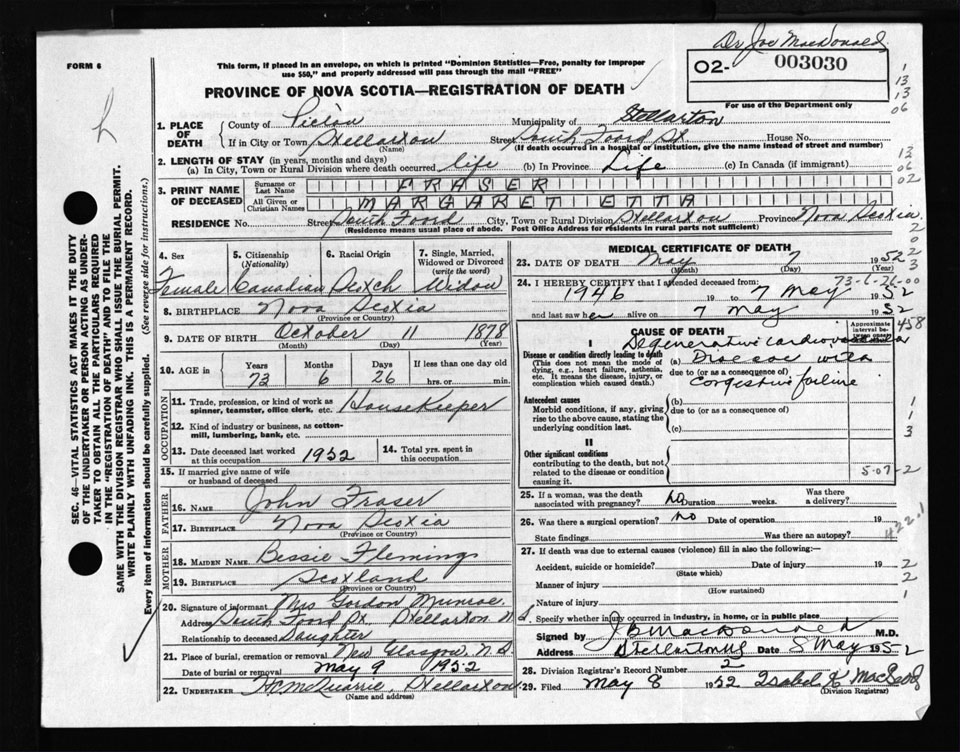 Dr Joe MacDonald
FORM 6
This form, if placed in an envelope, on which is printed "Dominion Statistics—Free, penalty for improper
use $50," and properly addressed will pass through the mail "FREE"
02- 003030
PROVINCE OF NOVA SCOTIA—REGISTRATION OF DEATH
For use of the Department only
1. PLACE OF DEATH
County of Pictou Municipality of Stellarton
If in City or Town Stellarton Street South Foord St House No.
(Name) (If death occurred in a hospital of institution, give the name instead of street and number)
2. LENGTH OF STAY (in years, months and days)
(a) In City, Town or Rural Division where death occurred life (b) In Province Life (c) In Canada (if immigrant)
3. PRINT NAME OF DECEASED
Surname or Last Name FRASER
All Given or Christian Names MARGARET ETTA
RESIDENCE No. Street South Foord City, Town or Rural Division Stellarton Province Nova Scotia
(Residence means usual place of abode. Post Office Address for residents in rural parts not sufficient)
4. Sex Female
5. Citizenship (Nationality) Canadian
6. Racial Origin Scotch
7. Single, Married, Widowed or Divorced (write the word) Widow
8. BIRTHPLACE Nova Scotia
(Province or Country)
9. DATE OF BIRTH October 11 1878
(Month) (Day) (Year)
10. AGE in Years 73 Months 6 Days 26 If less than one day hrs. or min.
OCCUPATION
11. Trade, profession, or kind of work as spinner, teamster, office clerk, etc. HouseKeeper
12. Kind of industry or business, as cotton-mill, lumbering, bank, etc.
13. Date deceased last worked at this occupation 1952
14. Total yrs. spent in this occupation
15. If married give name of wife or husband of deceased
FATHER
16. NAME John Fraser
17. BIRTHPLACE Nova Scotia
(Province or Country)
MOTHER
18. MAIDEN NAME Bessie Fleming
19. BIRTHPLACE Scotland
(Province or Country)
20. Signature of informant Mrs Gordon Munroe
Address South Foord St. Stellarton N.
Relationship to deceased Daughter
21. Place of burial, cremation or removal New Glasgow, N.S
Date of burial or removal May 9 1952
22. UNDERTAKER H. McQuarrie, Stellarton
(Name and address)
MEDICAL CERTIFICATE OF DEATH
23. DATE OF DEATH May 7 1952
(Month) (Day) (Year)
73-6-26-00
24. I HEREBY CERTIFY that I attended deceased from:
1946 19 to 7 May 1952
and last saw her alive on 7 May 1952
CAUSE OF DEATH
Approximate interval between
458
I
Disease or condition directly leading to death
(This does not mean the mode of dying, e.g., heart failure, asthenia, etc. It means the disease, injury, or complication which caused death.)
Degenerative cardiovascular
(a) Disease with
due to (or as a consequence of)
Congestive failure
Antecedent causes
Morbid conditions, if any, giving rise to the above cause, stating the underlying condition last.
(b)
due to (or as a consequence of)
(c)
II
Other significant conditions
contributing to the death, but not related to the disease or condition causing it.
5-07-2
25. If a woman, was the death associated with pregnancy? no Duration weeks. Was there a delivery?
26. Was there a surgical operation? no Date of operation 19
State findings Was there an autopsy?
422.1
27. If death was due to external causes (violence) fill in also the following:—
Accident, suicide or homicide? Date of injury 19
(State which)
Manner of injury
(How sustained)
Nature of injury
Specify whether injury occurred in industry, in home, or in public place
Signed by J B MacDonald M.D.
Address Stellarton NS Date 8 May 1952
28. Division Registrar's Record Number 2
29. Filed May 8 1952 Isabel K MacLeod
(Division Registrar)
SEC. 46—VITAL STATISTICS ACT MAKES IT THE DUTY
OF THE UNDERTAKER OR PERSON ACTING AS UNDER-
TAKER TO OBTAIN ALL THE PARTICULARS REQUIRED
IN THE "REGISTRATION OF DEATH" AND TO FILE THE
SAME WITH THE DIVISION REGISTRAR WHO SHALL ISSUE THE BURIAL PERMIT.
WRITE PLAINLY WITH UNFADING INK. THIS IS A PERMANENT RECORD.
Every item of information should be carefully supplied. (See reverse side for instructions.)